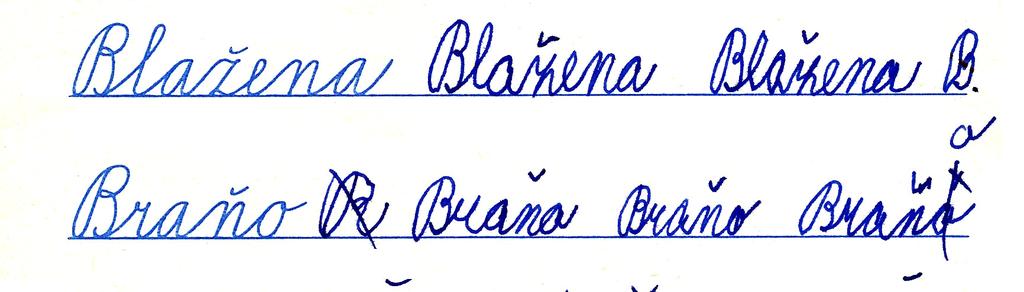 Blažena Blažena Blažena B.
Braňo Braňa Braňo Braňa